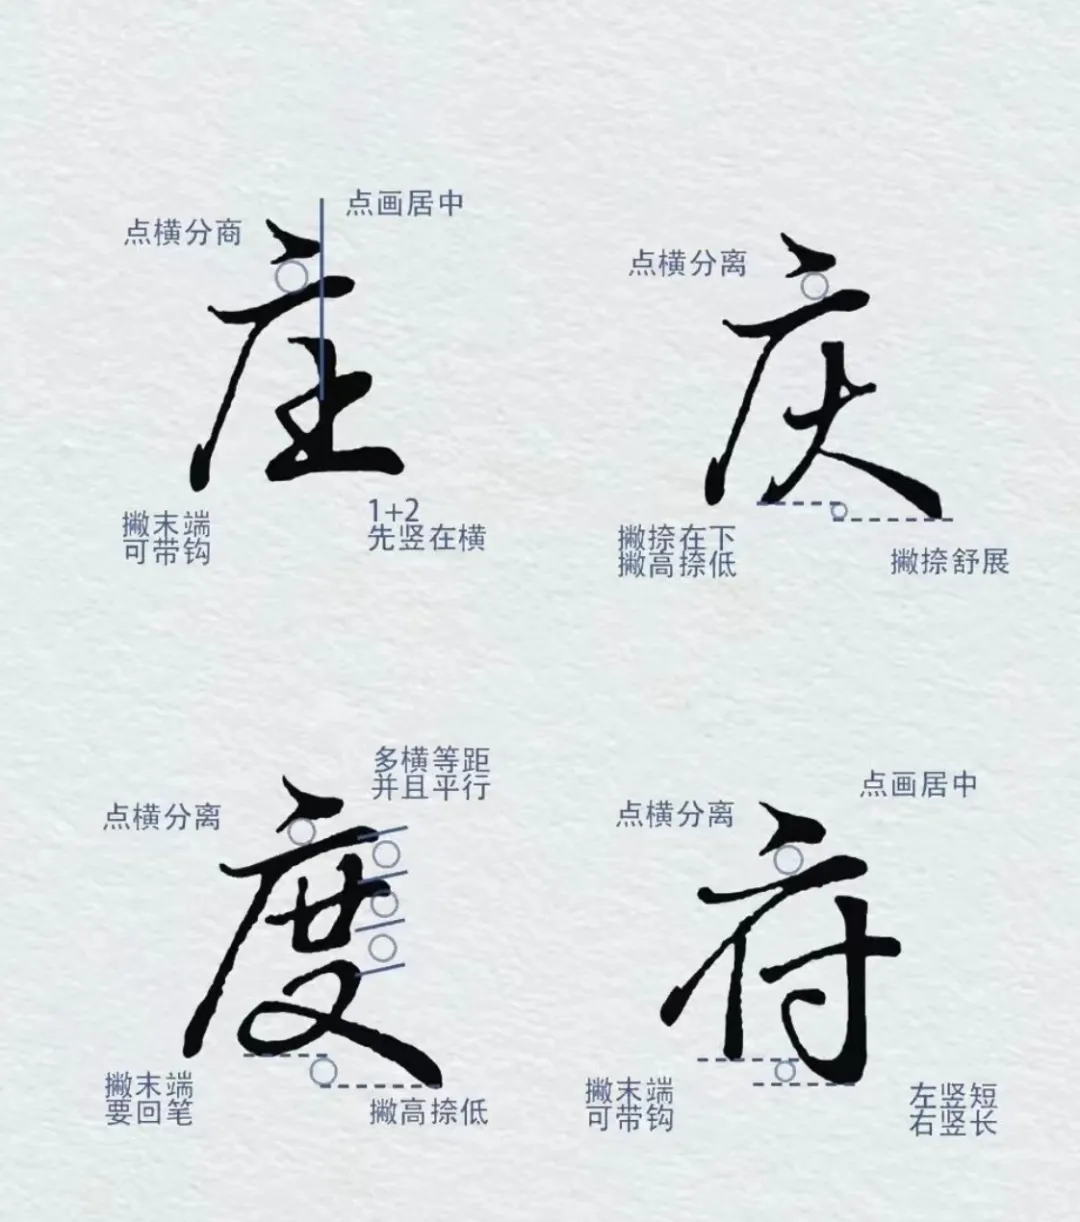 点画居中
点横分商
庄
撇末端
可带钩
1+2
先竖在横
点横分离
庆
撇捺在下
撇高捺低
撇捺舒展
多横等距
并且平行
点横分离
度
撇末端
要回笔
撇高捺低
点画居中
点横分离
府
撇末端
可带钩
左竖短
右竖长